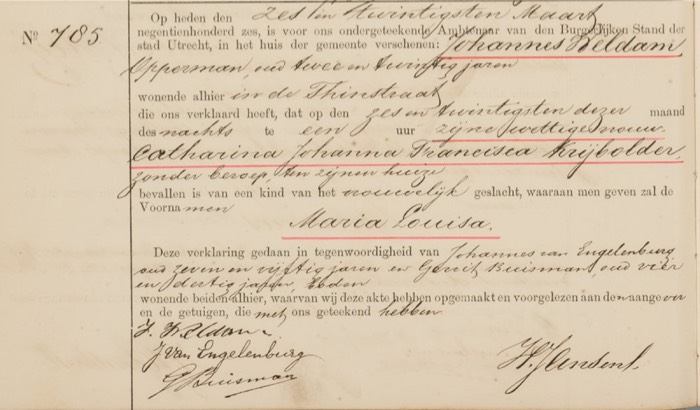 Nº 785
Op heden den zes en twintigsten Maart
negentienhonderd zes, is voor ons ondergeteekende Ambtenaar van den Burgerlijken Stand der
stad Utrecht, in het huis der gemeente verschenen: Johannes Beldam,
Opperman, oud twee en twintig jaren
wonende alhier in de
die ons verklaard heeft, dat op den zes en twintigsten dezer maand
des nachts te een uur zijne wettige vrouw
Catharina Johanna Francisca Krijbolder,
zonder beroep, ten zijnen huize
bevallen is van een kind van het vrouwelijk geslacht, waaraan men geven zal de
Voornamen
Maria Louisa.
Deze verklaring gedaan in tegenwoordigheid van Johannes van Engelenburg
oud zeven en vijftig jaren en Gerrit Buisman, oud vier
en dertig jaren, boden
wonende beiden alhier, waarvan wij deze akte hebben opgemaakt en voorgelezen aan den aangever
en de getuigen, die met ons geteekend hebben
J. Beldam
J van Engelenburg
G Buisman